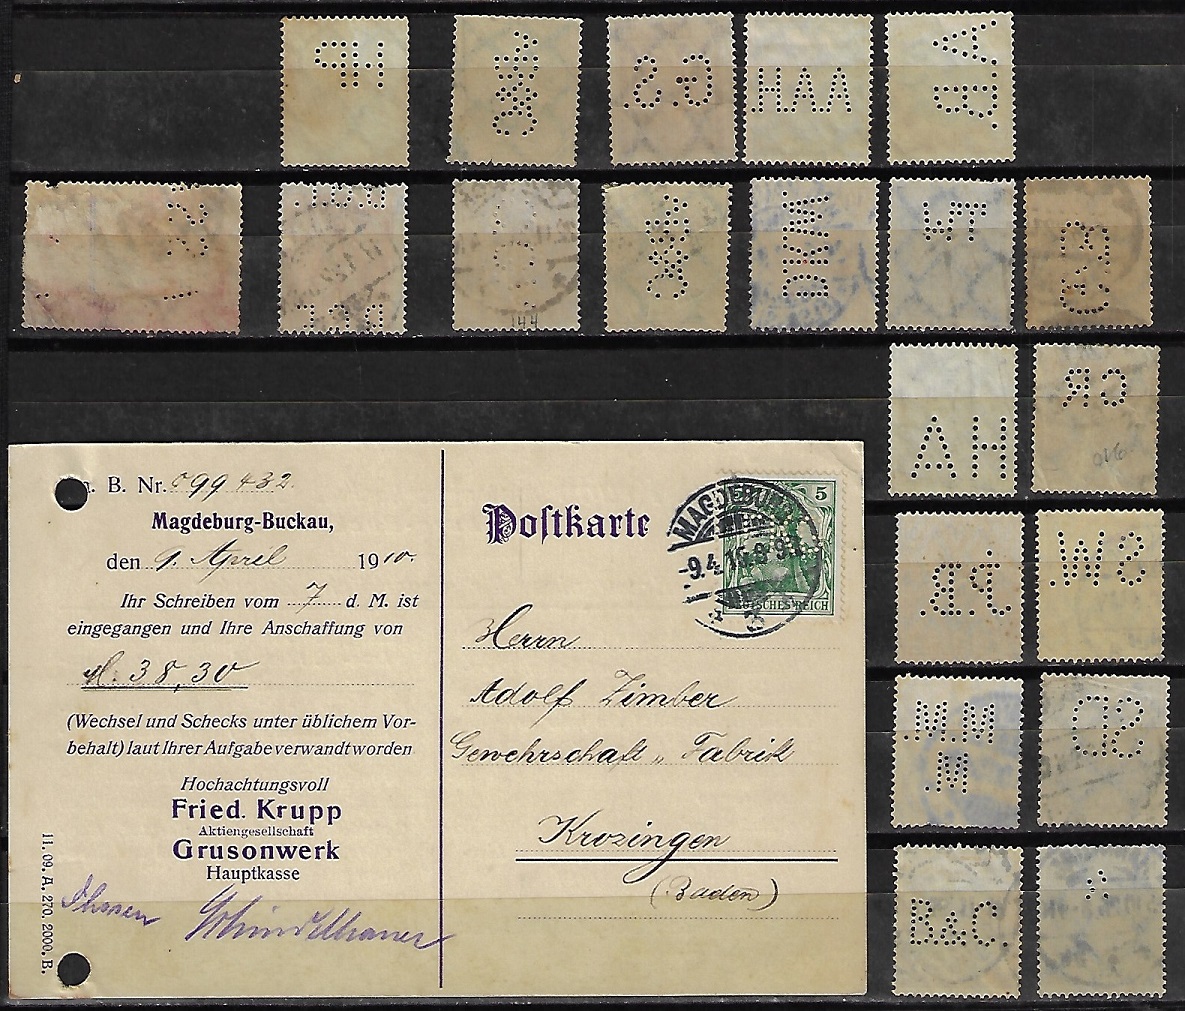 HAA
DKM
AH
W.S
M.M.
M.
B&C.
B. Nr. 099432
Magdeburg-Buckau,
den 9. April 1910.
Ihr Schreiben vom 7 d. M. ist
eingegangen und Ihre Anschaffung von
M. 38,30
(Wechsel und Schecks unter üblichem Vor-
behalt) laut Ihrer Aufgabe verwandt worden
Hochachtungsvoll
Fried. Krupp
Aktiengesellschaft
Grusonwerk
Hauptkasse
11. 09. A. 270. 2000. B.
Postkarte
5
MAGDEBURG
-9.4.10.8-9
DEUTSCHES REICH
Herrn
Adolf Zimber
Gewehrschaft „ Fabrik
Krozingen
(Baden)